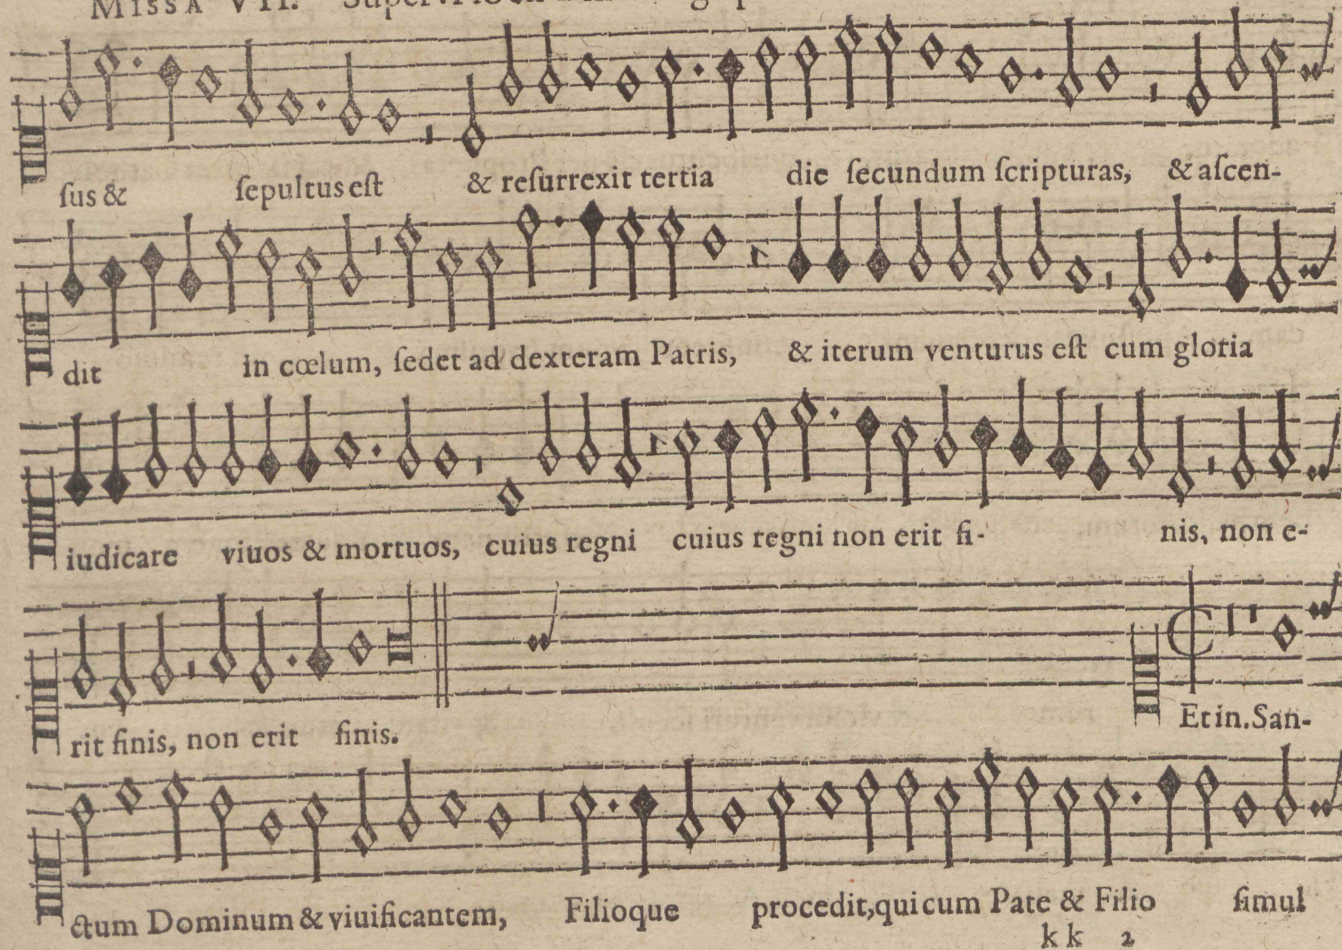 MISSA VII. Super.
ſus & ſepultus eſt & reſurrexit tertia die ſecundum ſcripturas, & aſcen-
dit in cœlum, ſedet ad dexteram Patris, & iterum venturus eſt cum gloria
iudicare viuos & mortuos, cuius regni cuius regni non erit fi- nis, non e-
rit finis, non erit finis. Et in. San-
ctum Dominum & viuificantem, Filioque procedit, qui cum Pate & Filio ſimul
k k 2